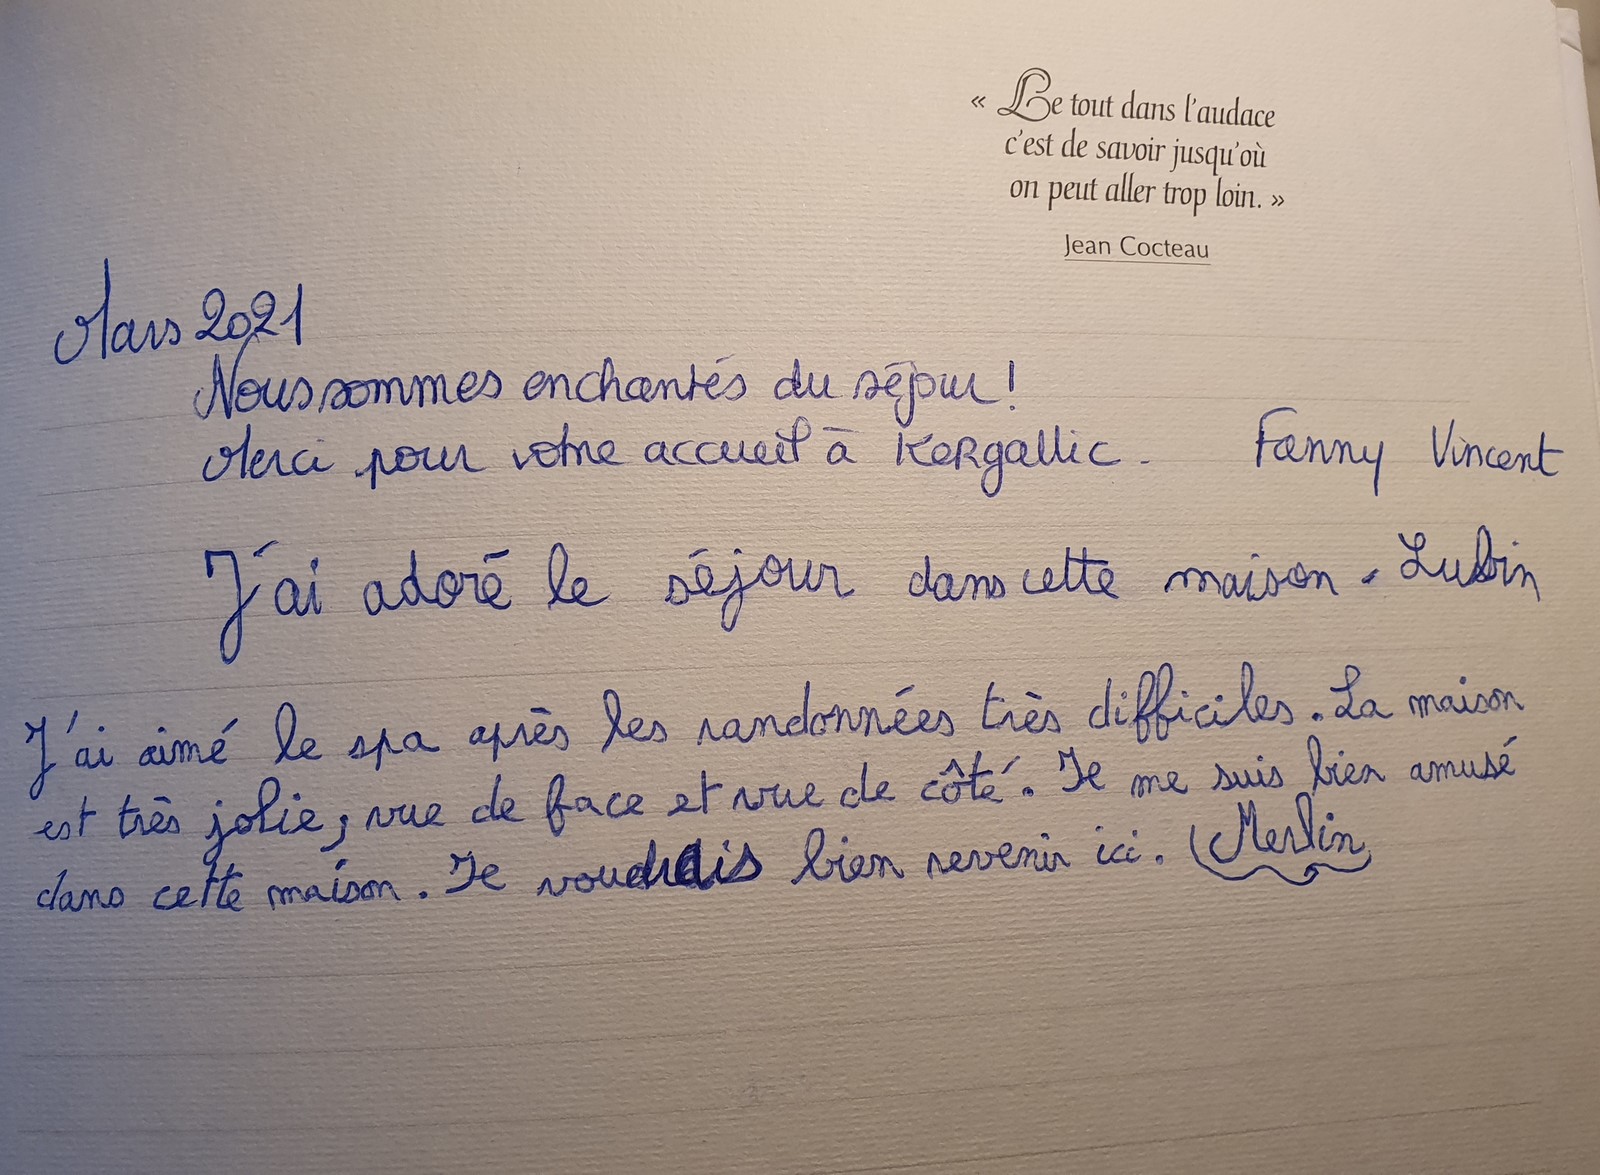 « Le tout dans l'audace
c'est de savoir jusqu'où
on peut aller trop loin. »
Jean Cocteau
Mars 2021
Nous sommes enchantés du séjour !
Merci pour votre accueil à Kergallic. Fanny Vincent
J'ai adoré le séjour dans cette maison. Lubin
J'ai aimé le spa après les randonnées très difficiles. La maison
est très jolie, vue de face et vue de côté. Je me suis bien amusé
dans cette maison. Je voudrais bien revenir ici. Merlin